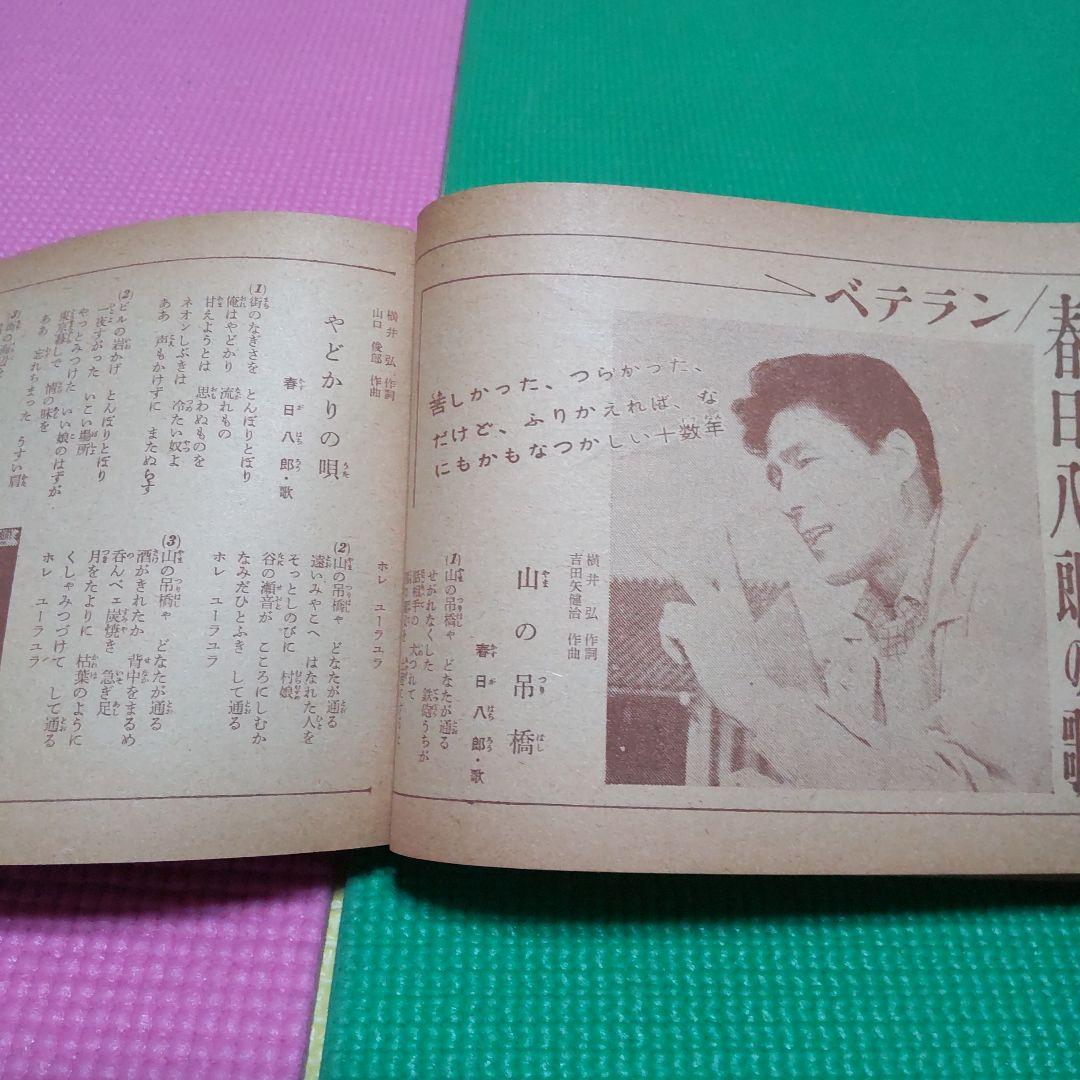 ベテラン/春日八郎の歌
苦しかった、つらかった、
だけど、ふりかえれば、な
にもかもなつかしい十数年
横井弘 作詞
吉田矢健治 作曲
山の吊橋
春日八郎・歌
(1)山の吊橋ャ どなたが通る
せがれなくした 鉄砲うちが
ホレ ユーラユラ
(2)山の吊橋ャ どなたが通る
遠いみやこへ はなれた人を
そっとしのびに 村娘
谷の瀬音が こころにしむか
なみだひとふき して通る
ホレ ユーラユラ
(3)山の吊橋ャ どなたが通る
酒がきれたか 背中をまるめ
呑んべェ炭焼き 急ぎ足
月をたよりに 枯葉のように
くしゃみつづけて して通る
ホレ ユーラユラ
横井弘 作詞
山口俊郎 作曲
やどかりの唄
春日八郎・歌
(1)街のなぎさを とんぼりとぼり
俺はやどかり 流れもの
甘えようとは 思わぬものを
ネオンしぶきは 冷たい奴よ
ああ 声もかけずに またぬらす
(2)ビルの岩かげ とんぼりとぼり
一夜すがった いこい場所
やっとみつけた いい娘のはずが
東京暮しで 情の味を
ああ 忘れちまった うすい肩